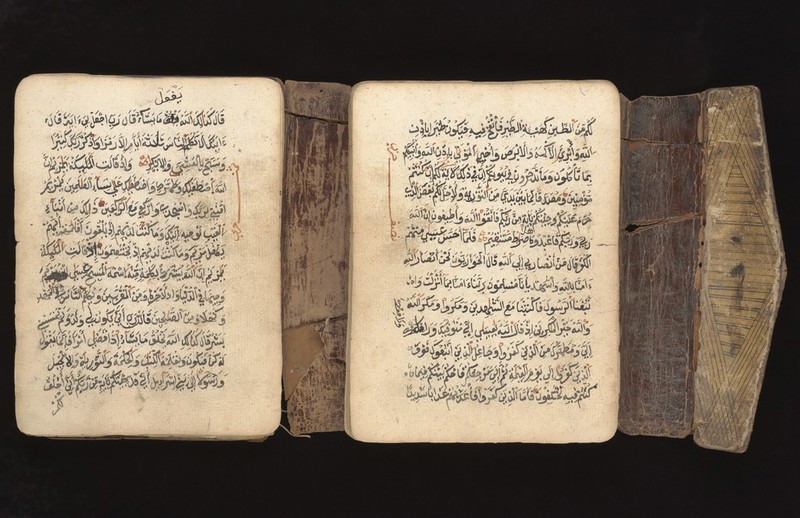 يفعل
قال كذلك الله ما يشاء قال رب اجعل لي ءاية قال
ءايتك ألا تكلم الناس ثلثة أيام إلا رمزا واذكر ربك كثيرا
وسبح بالعشي والابكر وإذ قالت الملئكة يمريم إن
الله اصطفيك وطهرك واصطفيك على نساء العلمين يمريم
اقنتي لربك واسجدي واركعي مع الركعين ذلك من أنباء
الغيب نوحيه إليك وما كنت لديهم إذ يلقون أقلمهم أيهم
يكفل مريم وما كنت لديهم إذ يختصمون إذ قالت الملئكة
يمريم إن الله يبشرك بكلمة منه اسمه المسيح عيسى
وجيها في الدنيا والاخرة ومن المقربين ويكلم الناس في المهد
وكهلا ومن الصلحين قالت رب أنى يكون لي ولد ولم يمسسني
بشر قال كذلك الله يخلق ما يشاء إذا قضى أمرا فإنما يقول
له كن فيكون ويعلمه الكتب والحكمة والتورية والانجيل
ورسولا إلى بني إسراءيل أني قد جئتكم بآية من ربكم أني أخلق
لكم
لكم من الطين كهيئة الطير فأنفخ فيه فيكون طيرا بإذن
الله وأبرئ الأكمه والأبرص وأحي الموتى بإذن الله وأنبئكم
بما تأكلون وما تدخرون في بيوتكم إن في ذلك لآية لكم إن كنتم
مومنين ومصدقا لما بين يدي من التورية ولأحل لكم بعض الذي
حرم عليكم وجئتكم بآية من ربكم فاتقوا الله وأطيعون إن الله
ربي وربكم فاعبدوه هذا صراط مستقيم فلما أحس عيسى منهم
الكفر قال من أنصاري إلى الله قال الحواريون نحن أنصار الله
ءامنا بالله واشهد بأنا مسلمون ربنا ءامنا بما أنزلت وا
تبعنا الرسول فاكتبنا مع الشهدين ومكروا ومكر الله
والله خير المكرين إذ قال الله يعيسى إني متوفيك ورافعك
إلي ومطهرك من الذين كفروا وجاعل الذين اتبعوك فوق
الذين كفروا إلى يوم القيمة ثم إلي مرجعكم فأحكم بينكم فيما
كنتم فيه تختلفون فأما الذين كفروا فأعذبهم عذابا شديدا